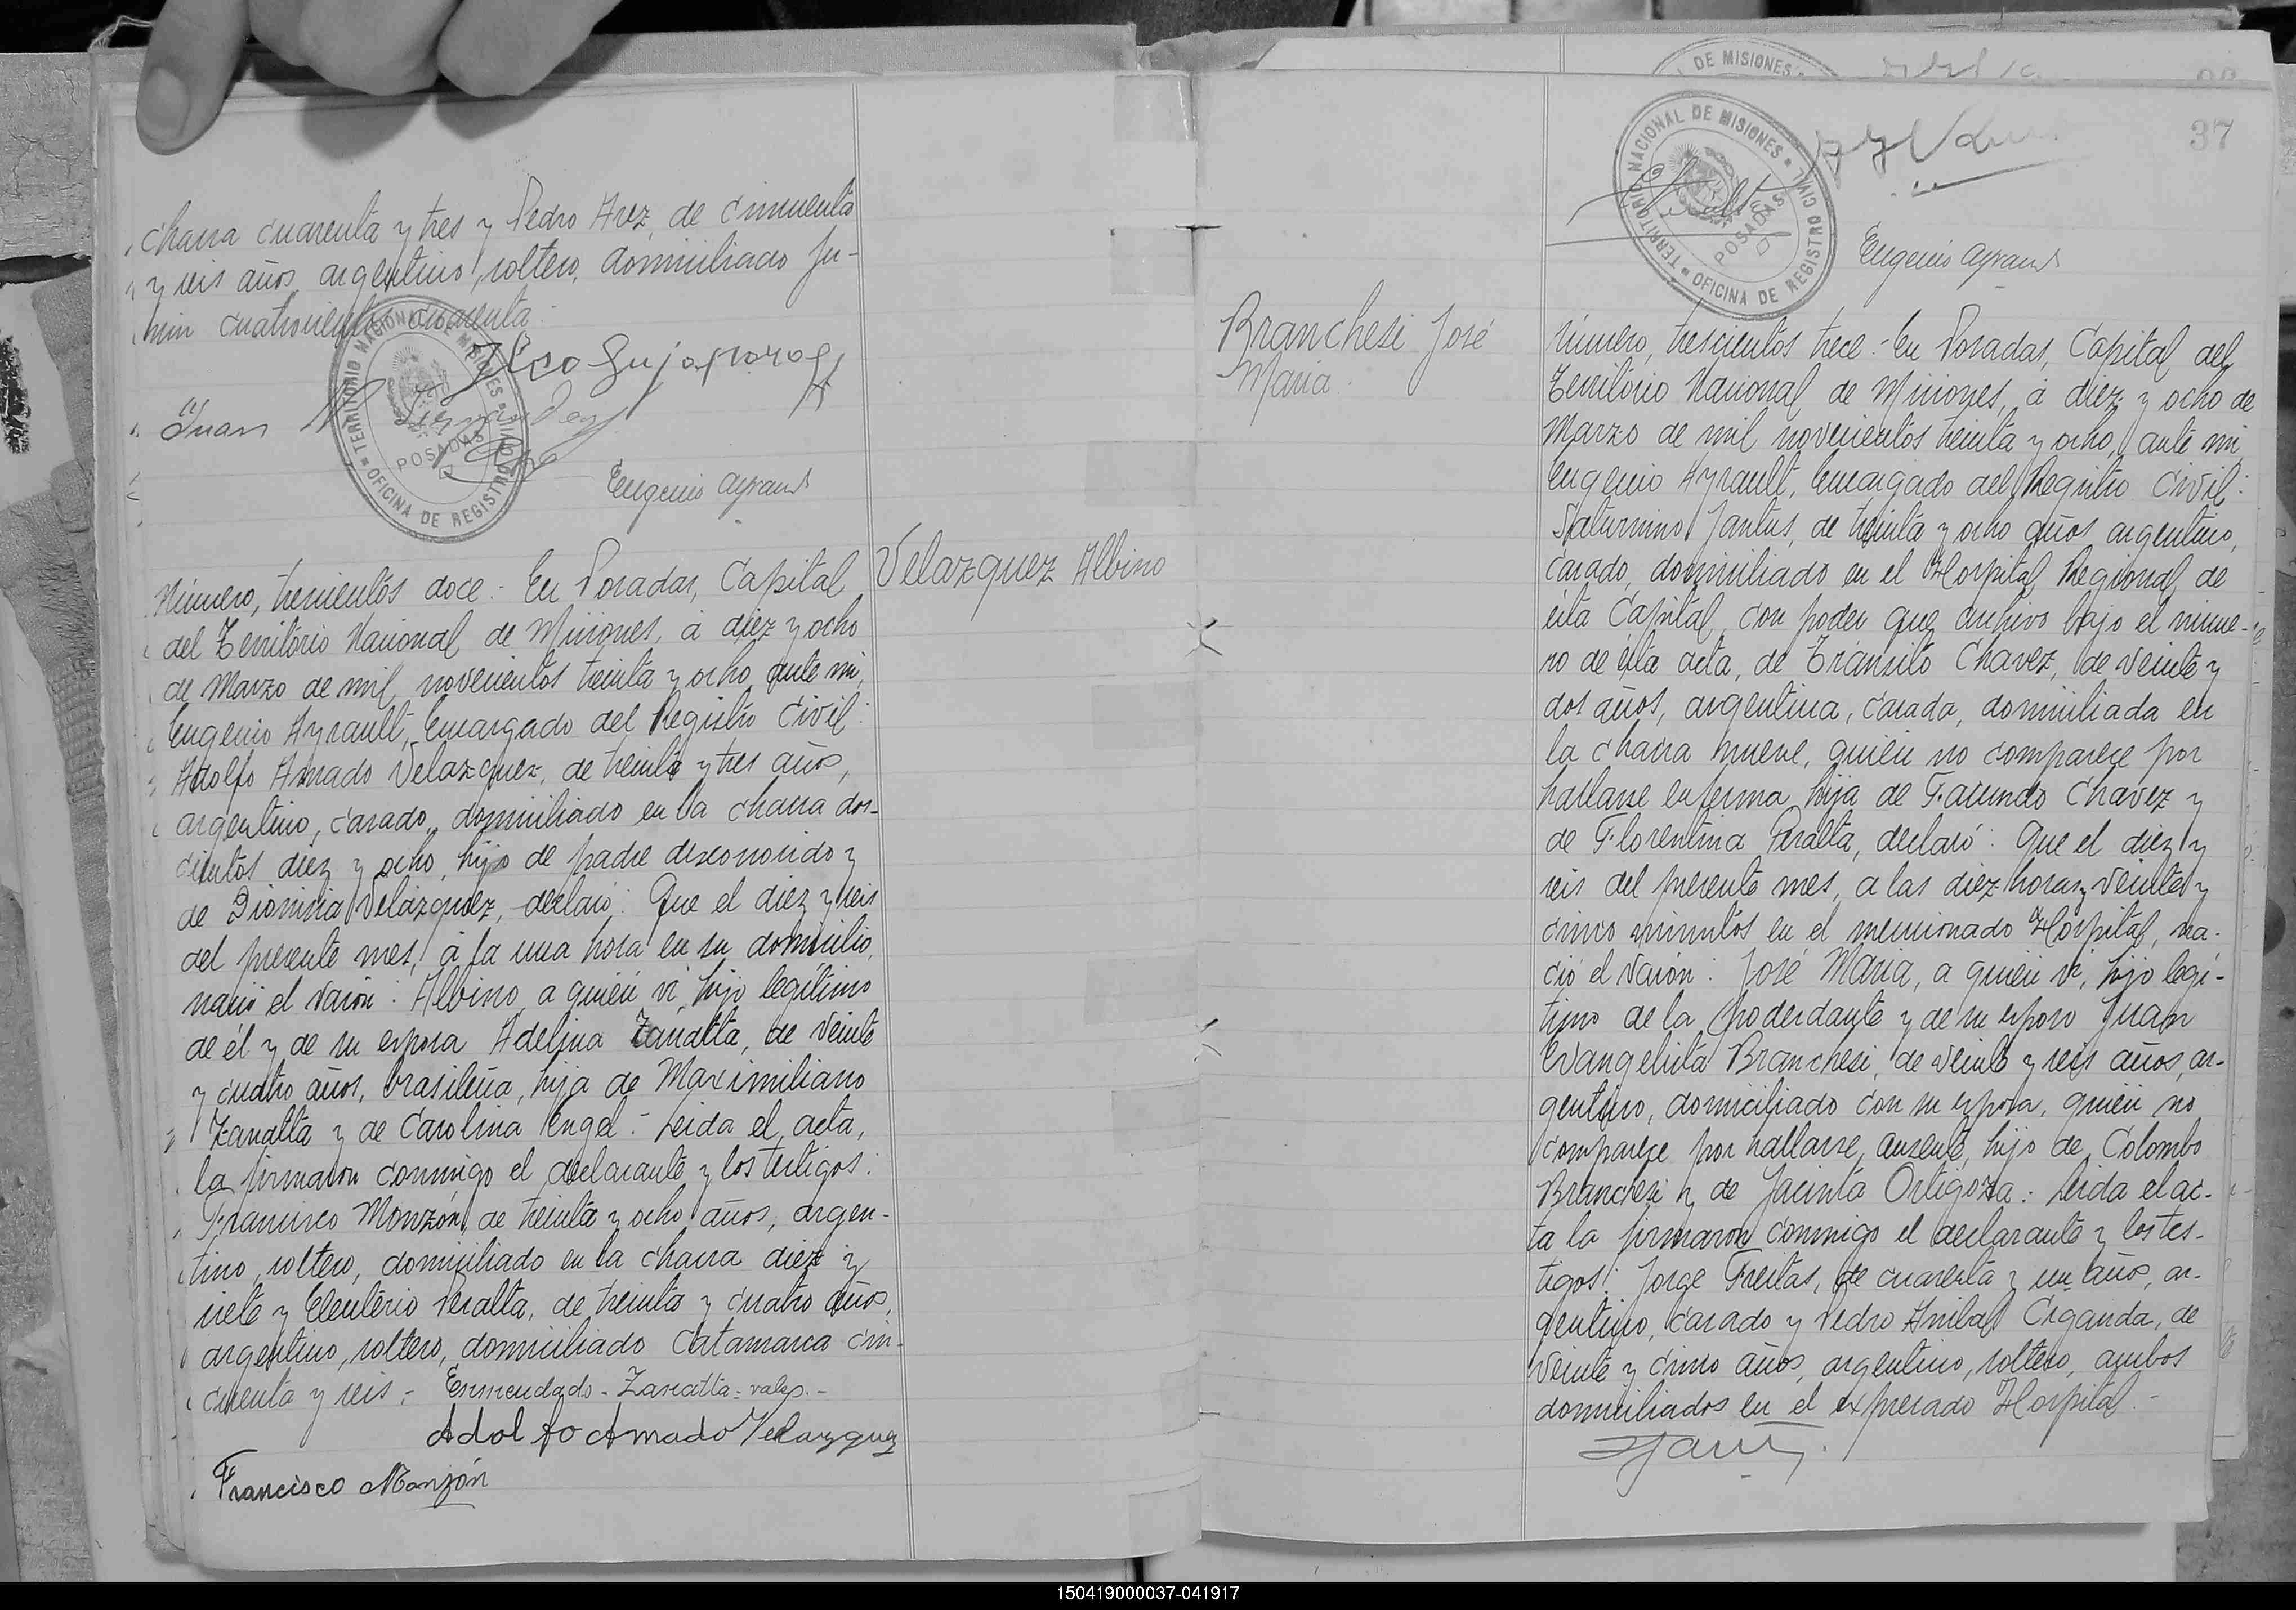 chacra cuarenta y tres y Pedro Arez, de cincuenta
y seis años, argentino, soltero, domiciliado Ju-
nin cuatrocientos cuarenta.
TERRITORIO NACIONAL DE MISIONES
POSADAS
OFICINA DE REGISTRO CIVIL
Juan
Eugenio Ayrault
Velazquez Albino
Número, trescientos doce.- En Posadas, Capital
del Territorio Nacional de Misiones, á diez y ocho
de Marzo de mil novecientos treinta y ocho, ante mi,
Eugenio Ayrault, Encargado del Registro Civil:
Adolfo Amado Velazquez, de treinta y tres años,
argentino, casado, domiciliado en la chacra dos-
cientos diez y ocho, hijo de padre desconocido y
de Dionicia Velazquez, declaró: Que el diez y seis
del presente mes, á la una hora en su domicilio,
nació el varón: Albino, a quién vi, hijo legítimo
de él y de su esposa Adelina Zanatta, de veinte
y cuatro años, brasileña, hija de Maximiliano
Zanatta y de Carolina Engel.- Leida el acta,
la firmaron conmigo el declarante y los testigos:
Francisco Monzón, de treinta y ocho años, argen-
tino, soltero, domiciliado en la chacra diez y
siete y Eleuterio Peralta, de treinta y cuatro años,
argentino, soltero, domiciliado Catamarca cin-
cuenta y seis.- Enmendado - Zanatta = vale.-
Adolfo Amado Velazquez
Francisco Monzón
DE MISIONES
37
TERRITORIO NACIONAL DE MISIONES
POSADAS
OFICINA DE REGISTRO CIVIL
Eugenio Ayrault
Branchesi José
Maria.
Número, trescientos trece.- En Posadas, Capital del
Territorio Nacional de Misiones, á diez y ocho de
Marzo de mil novecientos treinta y ocho, ante mi,
Eugenio Ayrault, Encargado del Registro Civil:
Saturnino Jantus, de treinta y ocho años, argentino,
casado, domiciliado en el Hospital Regional de
ésta Capital, con poder que archivo bajo el núme-
ro de ésta acta, de Transito Chavez, de veinte y
dos años, argentina, casada, domiciliada en
la chacra nueve, quién no comparece por
hallarse enferma, hija de Facundo Chavez y
de Florentina Peralta, declaró: Que el diez y
seis del presente mes, a las diez horas y veinte y
cinco minutos en el mencionado Hospital, na-
ció el varón: José Maria, a quién vi, hijo legi-
timo de la poderdante y de su esposo Juan
Evangelista Branchesi, de veinte y seis años, ar-
gentino, domiciliado con su esposa, quién no
comparece por hallarse ausente, hijo de Colombo
Branchesi y de Jacinta Ortigoza.- Leida el ac-
ta la firmaron conmigo el declarante y los tes-
tigos: Jorge Freitas, de cuarenta y un años, ar-
gentino, casado y Pedro Anibal Ciganda, de
veinte y cinco años, argentino, soltero, ambos
domiciliados en el expresado Hospital.-
150419000037-041917